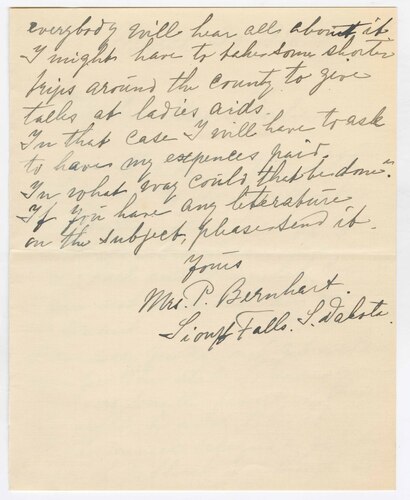 everybody will hear all about it.
I might have to take some shorter
trips around the county to give
talks at ladies aids.
In that case I will have to ask
to have my expences paid.
In what way could that be done".
If you have any leterature
on the subject, please send it.
Yours
Mrs. P. Bernhart.
Sioux Falls. S. Dakota.